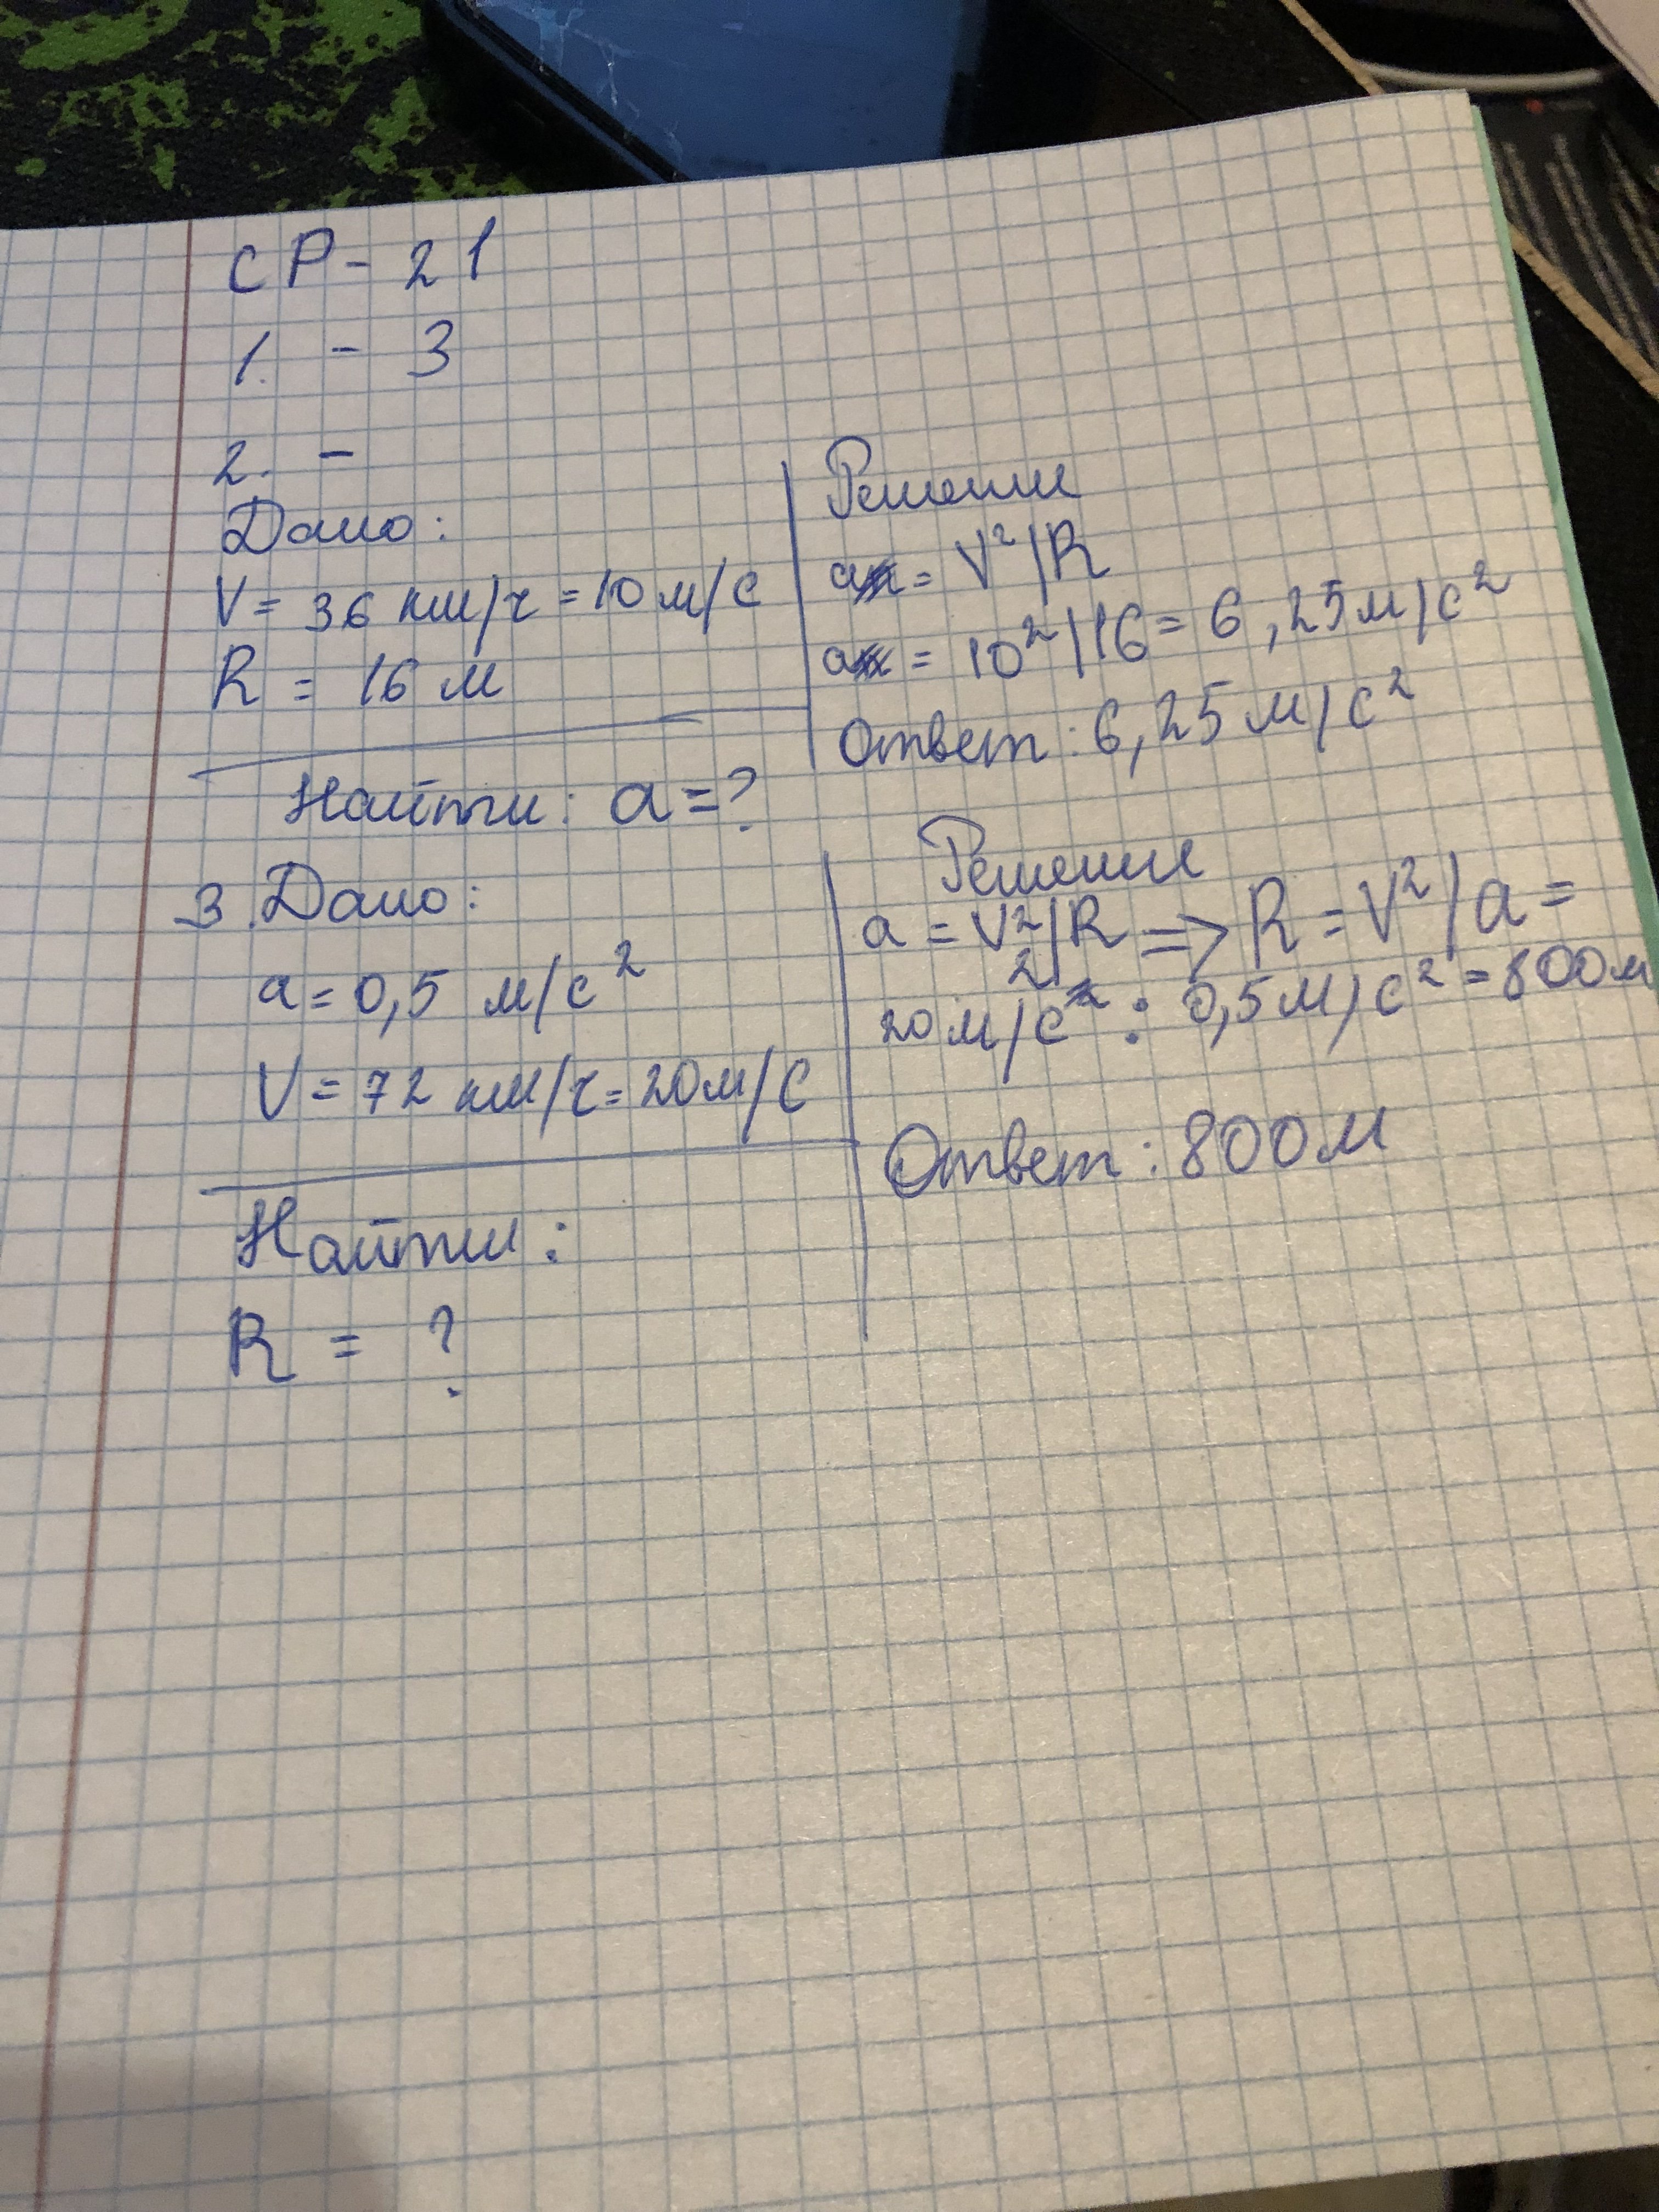 СР - 21
1. - 3
2. -
Дано:
V = 36 км/ч = 10 м/с
R = 16 м
Найти: a = ?
Решение
a = V²/R
a = 10²/16 = 6,25 м/с²
Ответ: 6,25 м/с²
3. Дано:
a = 0,5 м/с²
V = 72 км/ч = 20 м/с
Найти:
R = ?
Решение
a = V²/R => R = V²/a =
20 м/с² : 0,5 м/с² = 800 м
Ответ: 800 м